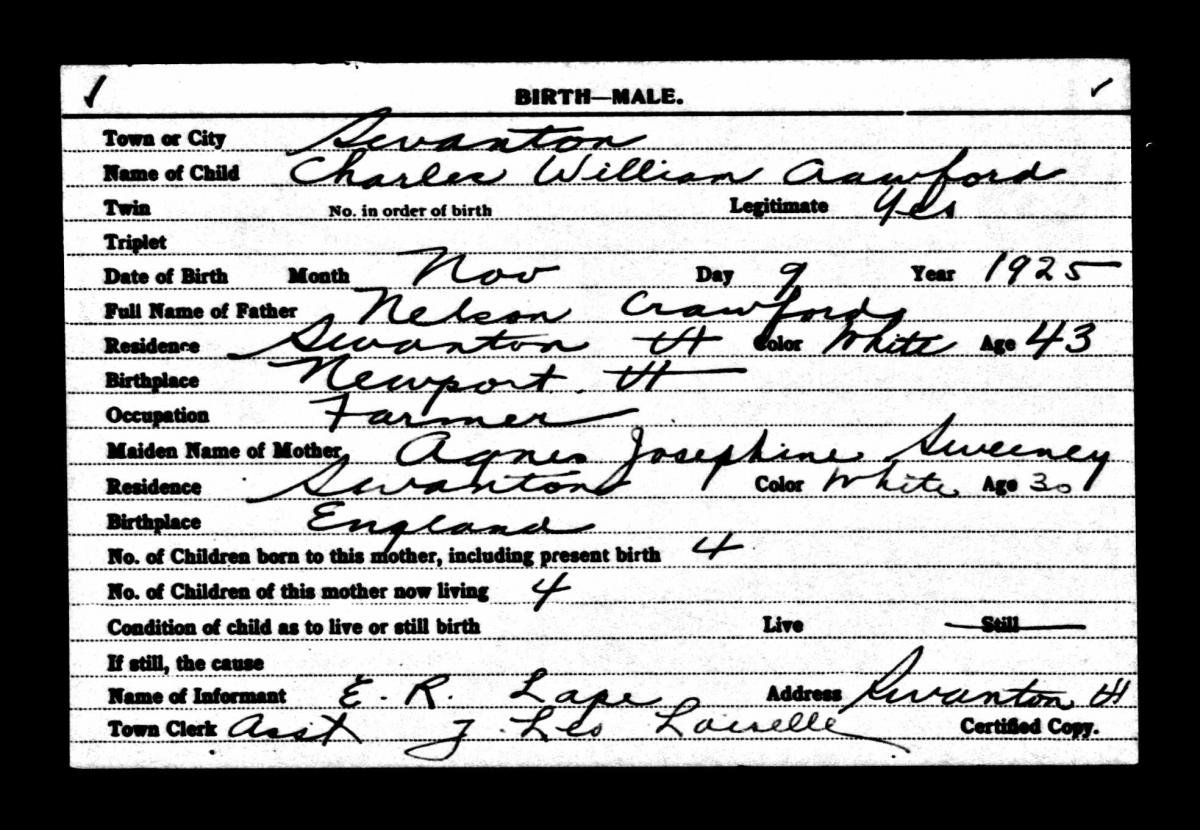 BIRTH—MALE.
Town or City Swanton
Name of Child Charles William Crawford
Twin No. in order of birth Legitimate Yes
Triplet
Date of Birth Month Nov Day 9 Year 1925
Full Name of Father Nelson Crawford
Residence Swanton Vt Color White Age 43
Birthplace Newport Vt
Occupation Farmer
Maiden Name of Mother Agnes Josephine Sweeney
Residence Swanton Color White Age 30
Birthplace England
No. of Children born to this mother, including present birth 4
No. of Children of this mother now living 4
Condition of child as to live or still birth Live Still
If still, the cause
Name of Informant E. R. Lape Address Swanton Vt
Town Clerk Asst J. Leo Loiselle Certified Copy.